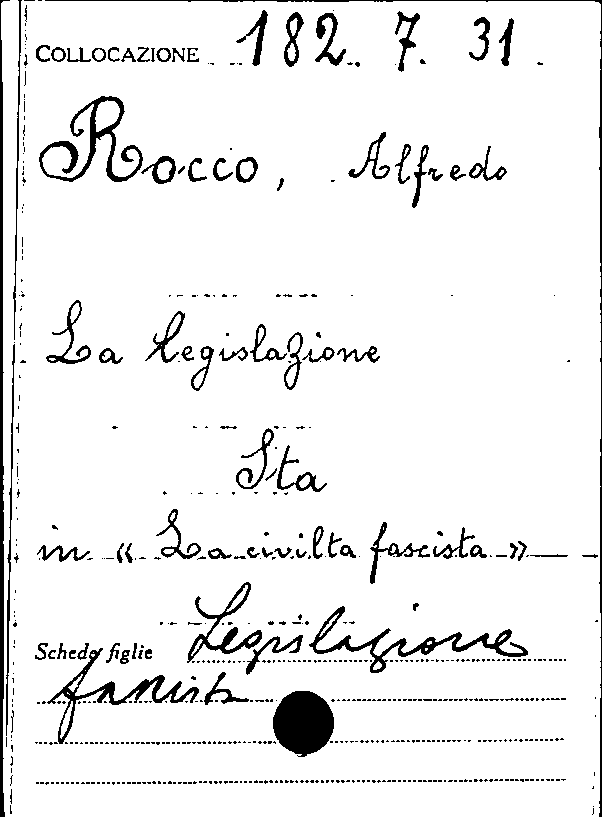 COLLOCAZIONE 182. 7. 31
Rocco, Alfredo
La legislazione
Sta
in « La civilta fascista »
Schede figlie Legislazione
fascista